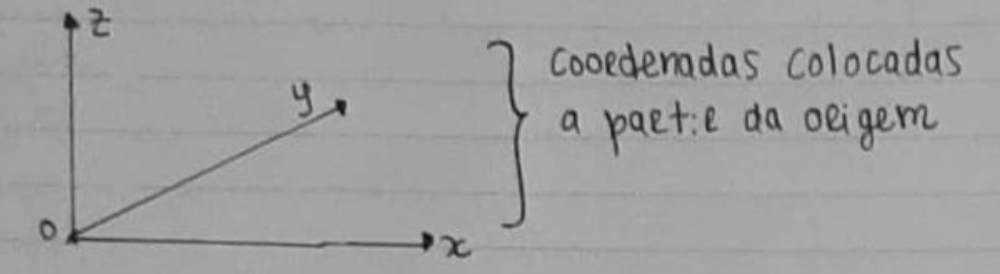 z
y
coordenadas colocadas
a partir da origem
0
x